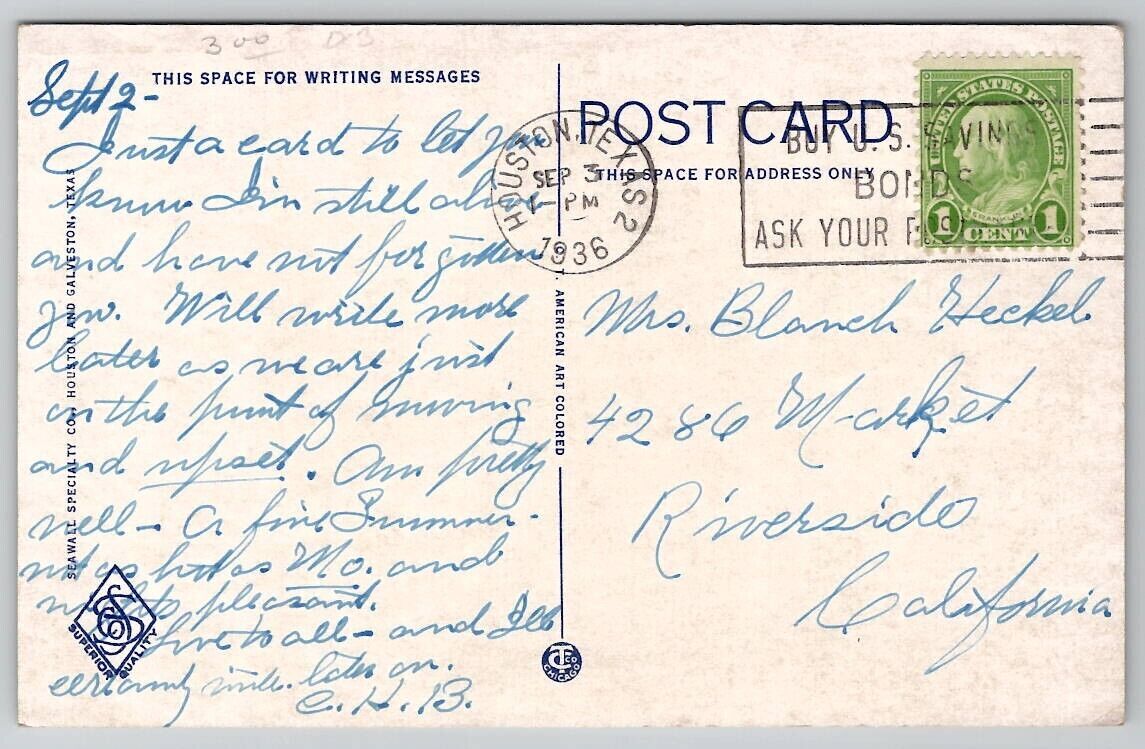 3 00 DB
THIS SPACE FOR WRITING MESSAGES
Sept 2-
Just a card to let you
know I'm still alive
and have not forgotten
you. Will write more
later as we are just
on the point of moving
and upset. Am pretty
well - A fine Summer -
not as hot as Mo. and
nights pleasant.
Love to all - and I'll
certainly write later on.
C. H. B.
SEAWALL SPECIALTY CO., HOUSTON AND GALVESTON, TEXAS
SUPERIOR QUALITY
AMERICAN ART COLORED
CTCO
CHICAGO
POST CARD
THIS SPACE FOR ADDRESS ONLY
HOUSTON, TEXAS 2
SEP 3
1-PM
1936
BUY U.S. SAVINGS
BONDS
ASK YOUR
UNITED STATES POSTAGE
FRANKLIN
1 CENT 1
Mrs. Blanch Heckel
4286 Market
Riverside
California